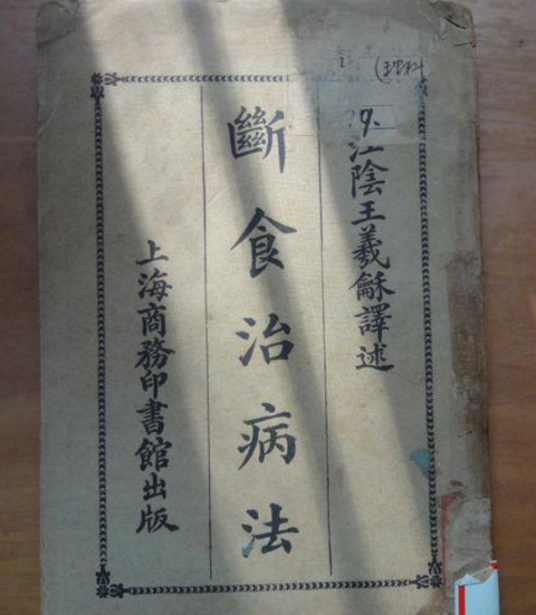 (理科)
江陰王羲龢譯述
斷食治病法
上海商務印書館出版